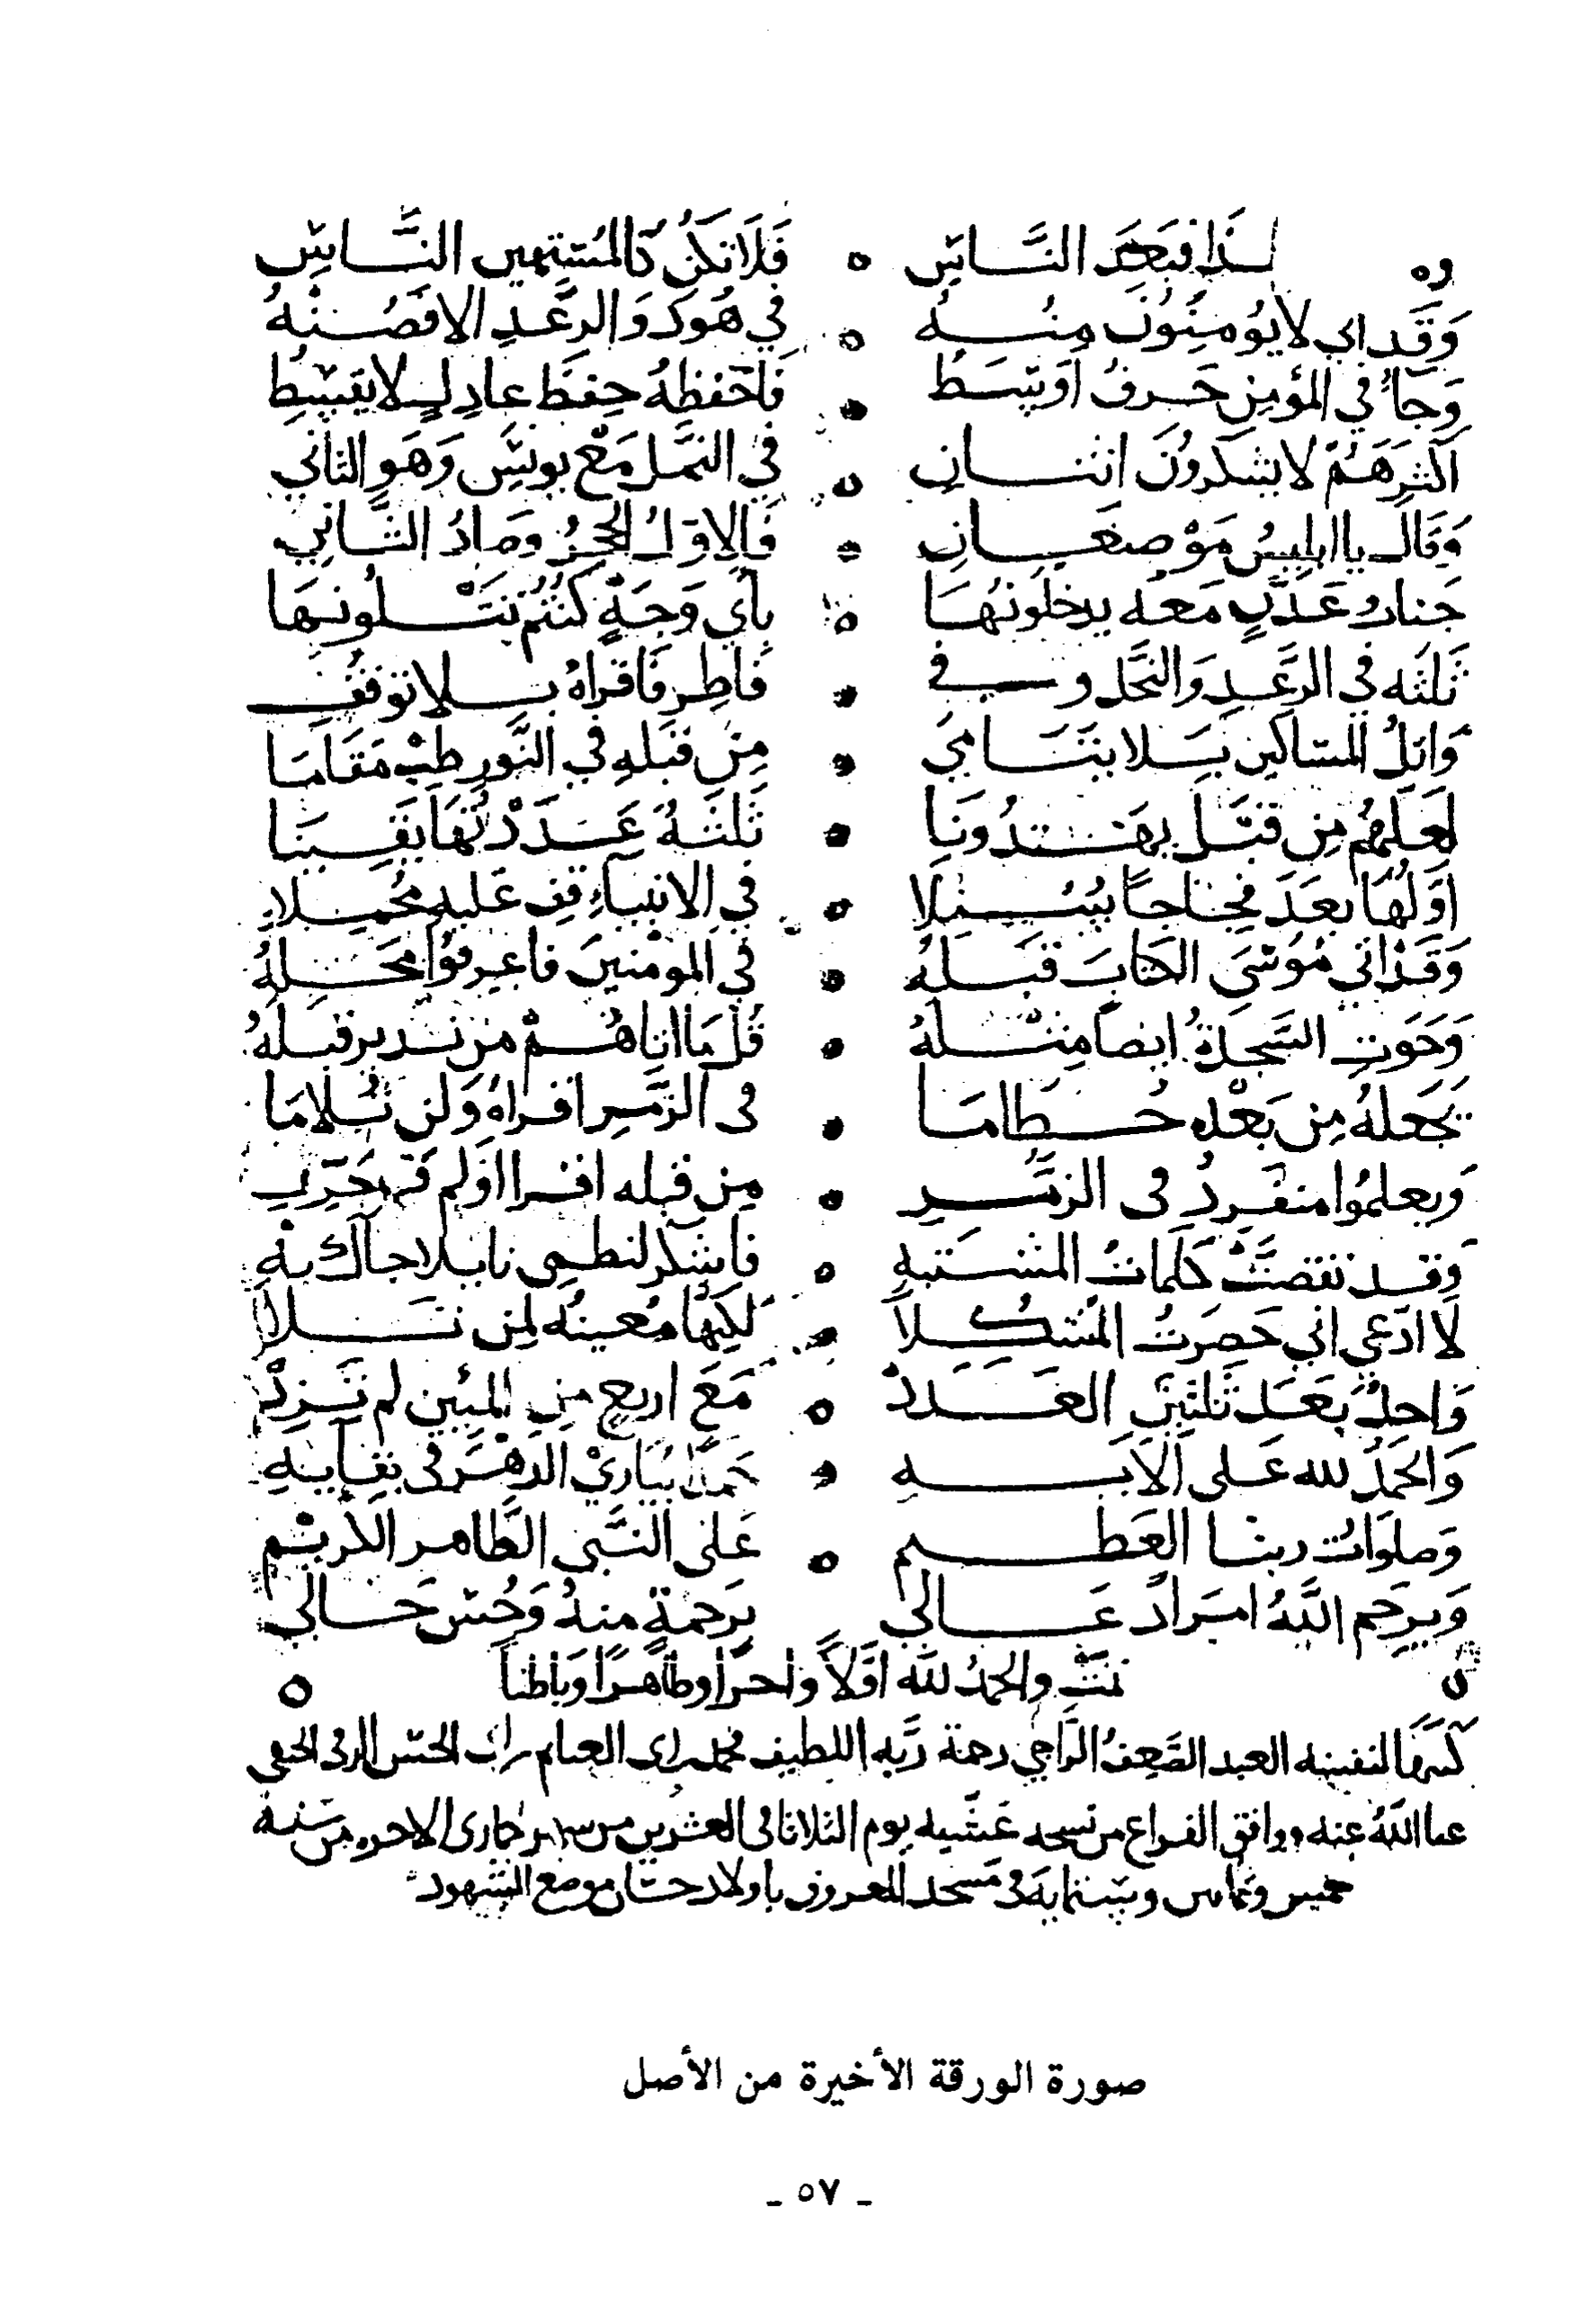 لذا فبعد الناس فلا تكن كالمستهين الناس
وقد اتي لا يومنون منه في هود والرعد الا فصنه
وجاء في المؤمن حرف اوسط فاحفظه حفظ عادل لا يقسط
اكثرهم لا يشكرون اثنان في النمل مع يونس وهو الثاني
وقال يا ابليس موضعان فالاول الحجر وصاد الثاني
جنات عدن معه يدخلونها باي وجه كنتم تتلونها
ثلثه في الرعد والنحل وفي فاطر فاقراه بلا توقف
واتل المساكين بلا يتامى من قبله في النور طب مقاما
لعلهم من قبل يهتدونا ثلثة عددتها يقينا
اولها بعد فجاجا سبلا في الانبياء قف عليه مجملا
وقد اتي موسى الكتاب قبله في المومنين فاعرفوا محله
وحوت السجدة ايضا مثله قل ما اتاهم من نذير قبله
يجعله من بعده حطاما في الزمر اقراه ولن تلاما
ويعلموا منفرد في الزمر من قبله اقرا اولم
وقد تقضت كلمات المشتبه فاشكر لنظمي نابلا جاك به
لا ادعي اني حصرت المشكلا لكنها معينه لمن تلا
واحد بعد ثلثين العدد مع اربع من المئين لم تزد
والحمد لله على الايه حمدا يباري الدهر في بقايه
وصلوات ربنا العظيم على النبي الطاهر الكريم
ويرحم الله امرا دعا لي برحمة منه وحسن حالي
تمت والحمد لله اولا واخرا وظاهرا وباطنا
كتبها لنفسه العبد الضعيف الراجي رحمة ربه اللطيف محمد بن الحنفي
عفا الله عنه ووافق الفراغ من نسخه عشيه يوم الثلاثا في العشرين من شهر جمادى الاخره من سنة
خمس وستمايه في مسجد المعروف باولاد موضع الشهود
صورة الورقة الأخيرة من الأصل
- ٥٧ -